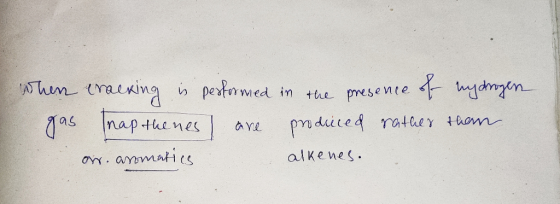 When cracking is performed in the presence of hydrogen
gas napthenes are produced rather than
or. aromatics alkenes.